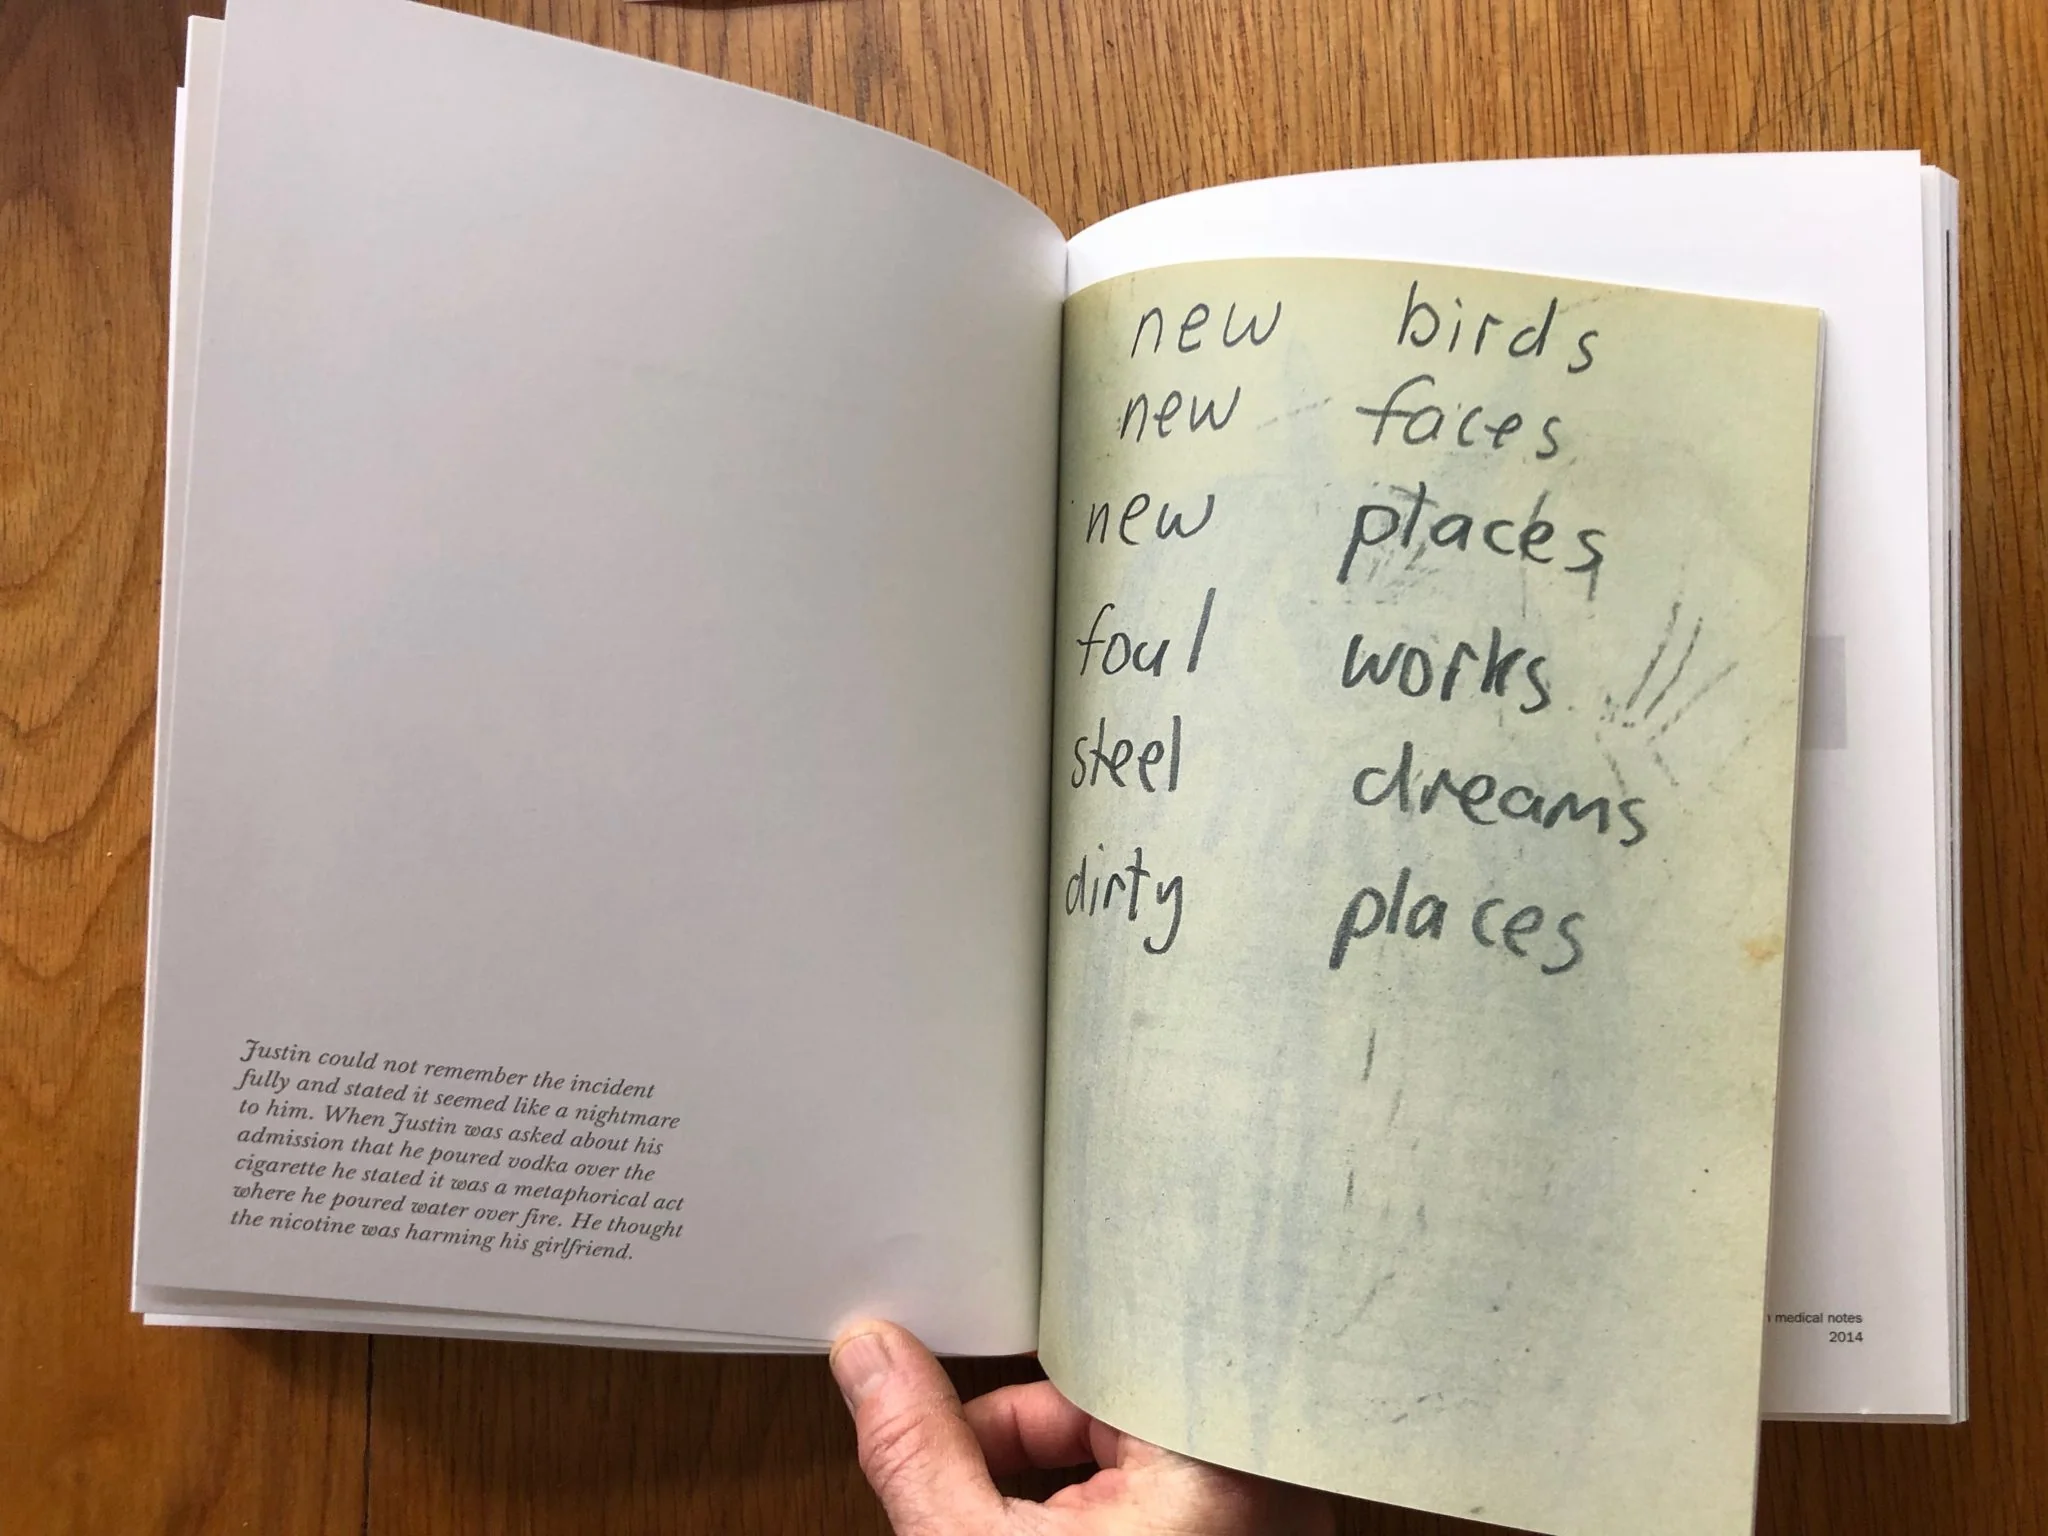 Justin could not remember the incident
fully and stated it seemed like a nightmare
to him. When Justin was asked about his
admission that he poured vodka over the
cigarette he stated it was a metaphorical act
where he poured water over fire. He thought
the nicotine was harming his girlfriend.
new birds
new faces
new places
foul works
steel dreams
dirty places
medical notes
2014